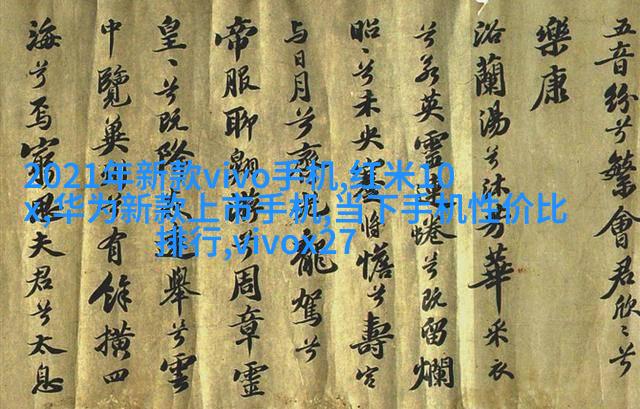 2021年新款vivo手机,红米10
x,华为新款上市手机,当下手机性价比
排行,vivox27
五音紛兮繁會君欣〻兮
樂康
浴蘭湯兮沐芳華采衣
兮若英靈連蜷兮既留爛
昭〻兮未央將憺兮壽宮
与日月兮齊光龍駕兮
帝服聊翱兮周章靈
皇〻兮既降舉兮雲
中覽冀有餘橫四
海兮焉窮夫君兮太息